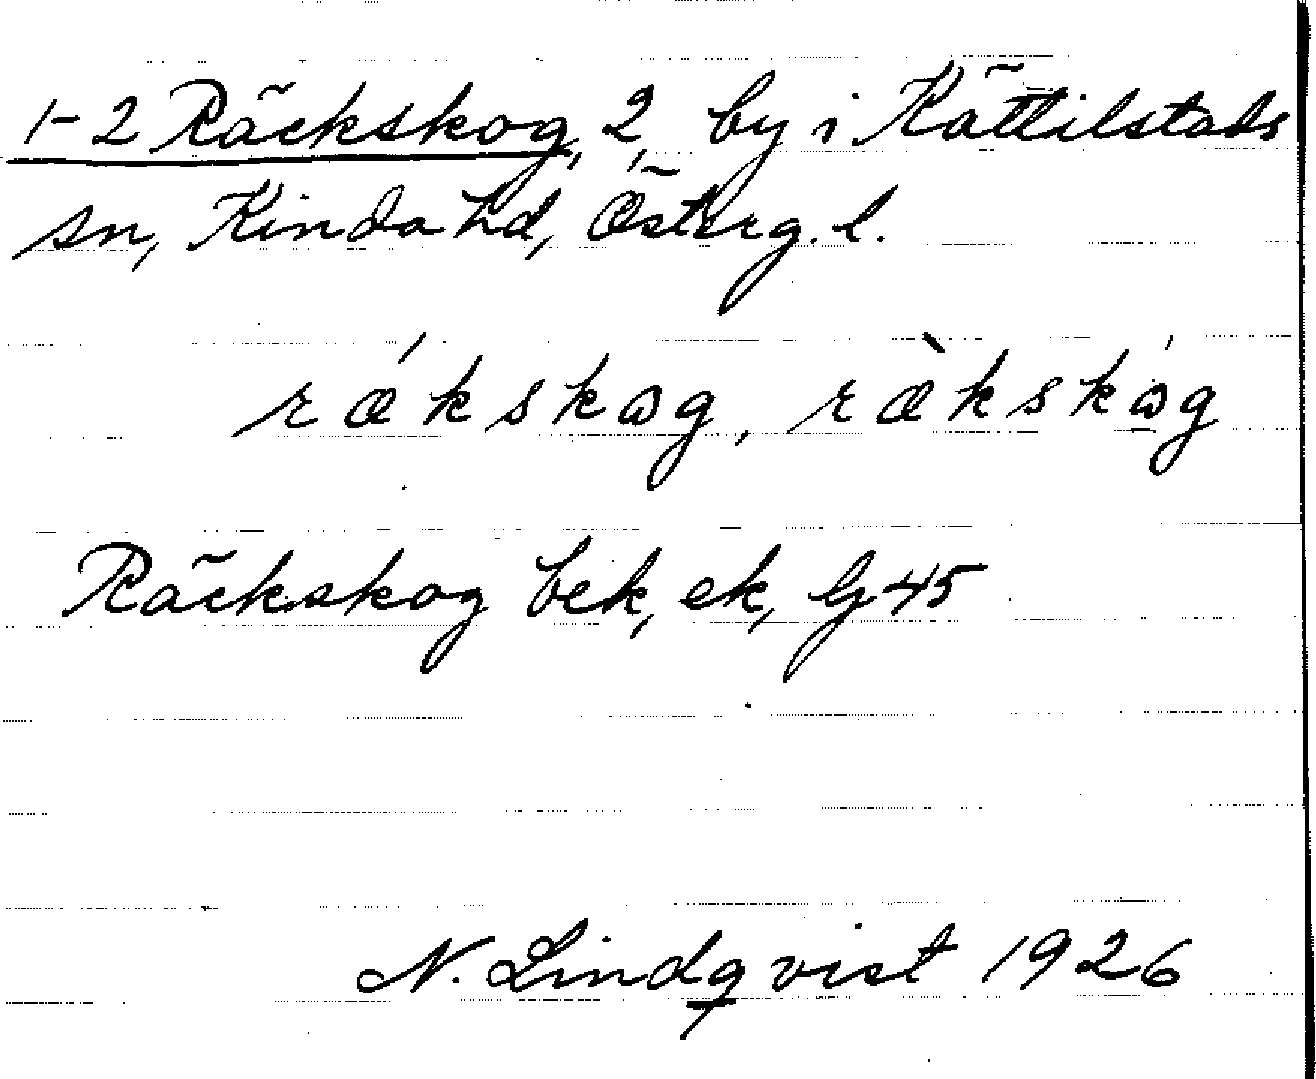 1-2 Räckskog, 2, by i Kättilstads
sn, Kinda hd, Österg. l.
rǽkskɷg, ræ̀kskɷ́g
Räckskog bek, ek, Gj 45
N. Lindqvist 1926